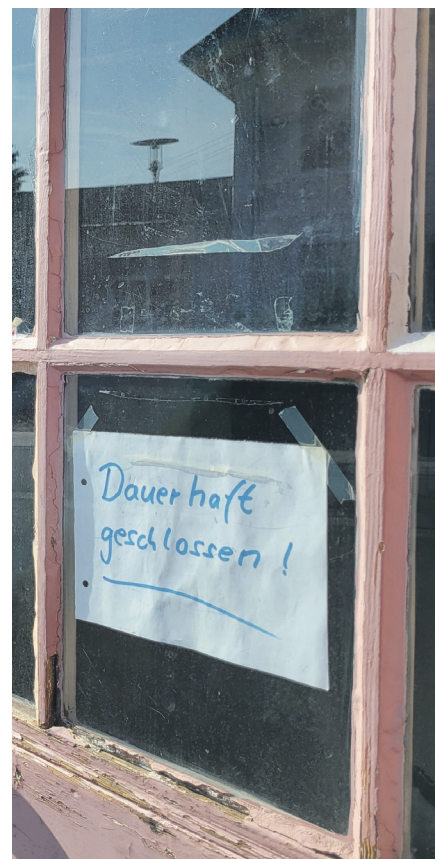 Dauerhaft
geschlossen !